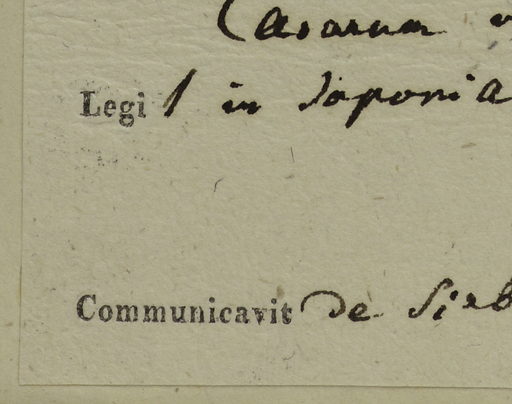 Legi in Japonia
Communicavit de Sieb